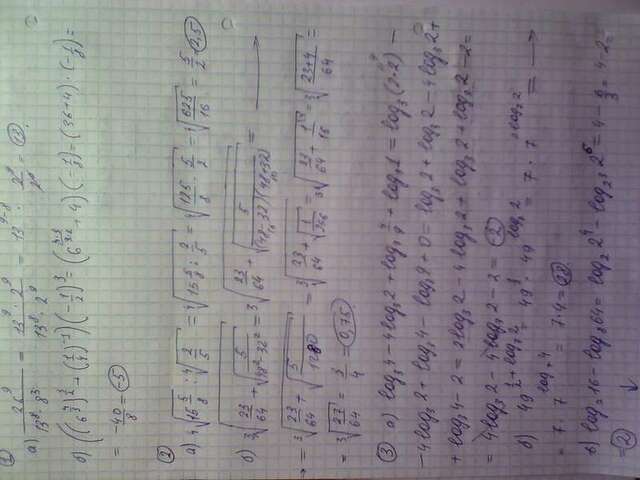 ①
а) 26⁹ / (13⁸ · 8³) = (13⁹ · 2⁹) / (13⁸ · 2⁹) = 13⁹⁻⁸ · 2⁹/2⁹ = 13.
б) ((6^(4/3))^(3/2) + (1/4)⁻¹)(-1/2)³ = (6^(4·3/3·2) + 4)(-1/8) = (36+4) · (-1/8) =
= -40/8 = -5
②
а) ⁴√(15 5/8) : ⁴√(2/5) = ⁴√(15 5/8 : 2/5) = ⁴√(125/8 · 5/2) = ⁴√(625/16) = 5/2 = 2,5
б) ³√(23/64 + √(5/(48² - 32²))) = ³√(23/64 + √(5/((48-32)(48+32)))) = →
→ = ³√(23/64 + √(5/1280)) = ³√(23/64 + √(1/256)) = ³√(23/64 + 1/16) = ³√((23+4)/64) =
= ³√(27/64) = 3/4 = 0,75
③ а) log₃4 - 4log₃2 + log₃ 4/9 + log₃1 = log₃(2·2) -
- 4log₃2 + log₃4 - log₃9 + 0 = log₃2 + log₃2 - 4log₃2 +
+ log₃4 - 2 = 2log₃2 - 4log₃2 + log₃2 + log₃2 - 2 =
= 4log₃2 - 4log₃2 - 2 = -2
б) 49^(1/2 + log₇2) = 49^(1/2) · 49^(log₇2) = 7 · 7^(2log₇2) = →
= 7 · 7^(log₇4) = 7·4 = 28
в) log₂16 - log₈64 = log₂2⁴ - log₂³2⁶ = 4 - 6/3 = 4-2 =
= 2